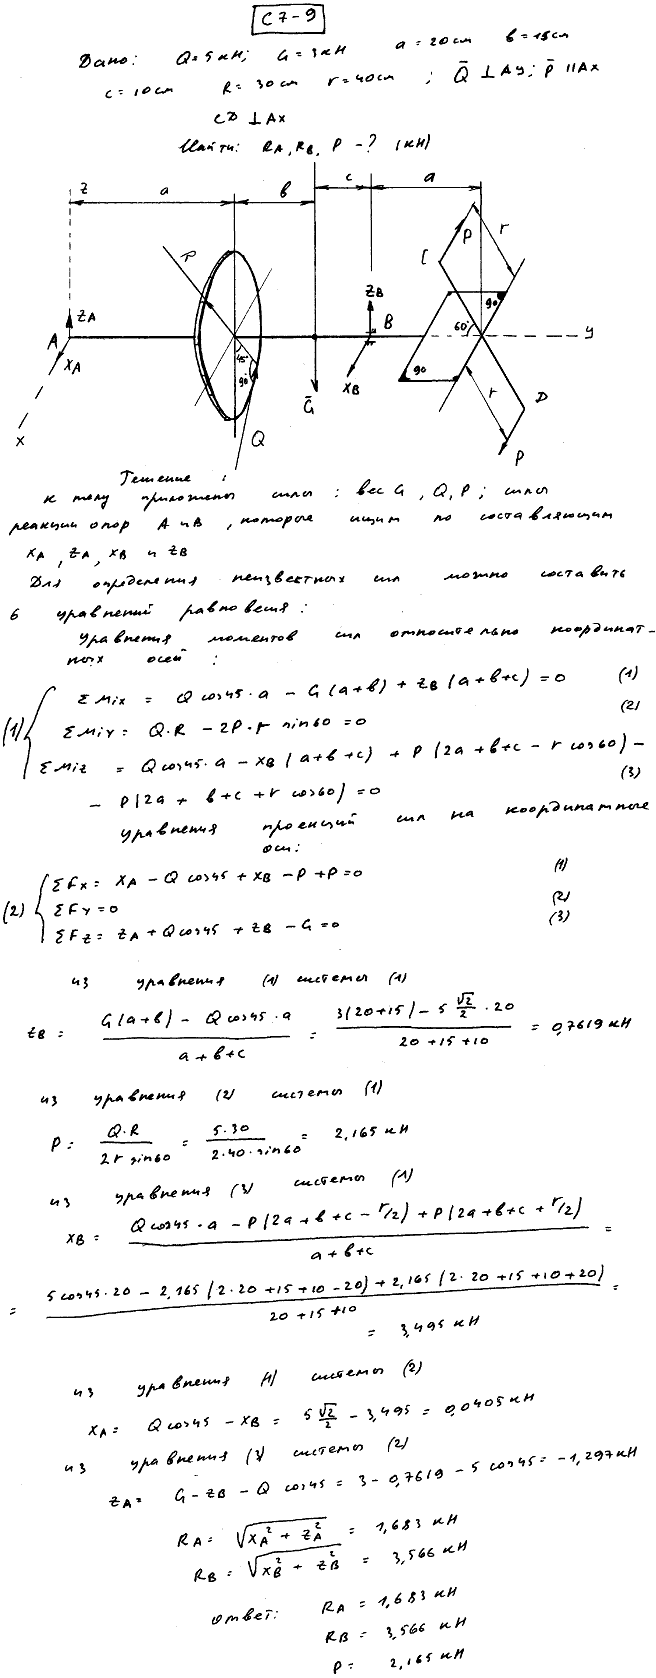 С7-9
Дано: Q=5кН; G=3кН a=20см b=15см
c=10см R=30см r=40см ; Q̄ ⊥Ay; P̄ ∥Ax
CD ⊥Ax
Найти: RA, RB, P -? (кН)
z a b c a
C P r
P zB 90
zA B 60° y
A
xA 45° 90 r
90 xB D
x Ḡ
Q P
Решение:
К телу приложены силы: вес G, Q, P; силы
реакции опор A и B, которые ищим по составляющим
XA, ZA, XB и ZB
Для определения неизвестных сил можно составить
6 уравнений равновесия:
Уравнения моментов сил относительно координат-
ных осей:
ΣMix = Q cos45·a - G(a+b) + ZB(a+b+c) = 0 (1)
(1) ΣMiy = Q·R - 2P·r sin60 = 0 (2)
ΣMiz = Q cos45·a - XB(a+b+c) + P(2a+b+c - r cos60) -
- P(2a + b+c + r cos60) = 0 (3)
Уравнения проекций сил на координатные
оси:
ΣFx = XA - Q cos45 + XB - P + P = 0 (1)
(2) ΣFy = 0 (2)
ΣFz = ZA + Q cos45 + ZB - G = 0 (3)
из уравнения (1) системы (1)
ZB = G(a+b) - Q cos45·a / a+b+c = 3(20+15) - 5 √2/2 · 20 / 20+15+10 = 0,7619 кН
из уравнения (2) системы (1)
P = Q·R / 2r sin60 = 5·30 / 2·40·sin60 = 2,165 кН
из уравнения (3) системы (1)
XB = Q cos45·a - P(2a+b+c - r/2) + P(2a+b+c + r/2) / a+b+c =
= 5 cos45·20 - 2,165(2·20+15+10-20) + 2,165(2·20+15+10+20) / 20+15+10 =
= 3,495 кН
из уравнения (1) системы (2)
XA = Q cos45 - XB = 5 √2/2 - 3,495 = 0,0405 кН
из уравнения (3) системы (2)
ZA = G - ZB - Q cos45 = 3 - 0,7619 - 5 cos45 = -1,297 кН
RA = √XA² + ZA² = 1,683 кН
RB = √XB² + ZB² = 3,566 кН
ответ: RA = 1,683 кН
RB = 3,566 кН
P = 2,165 кН